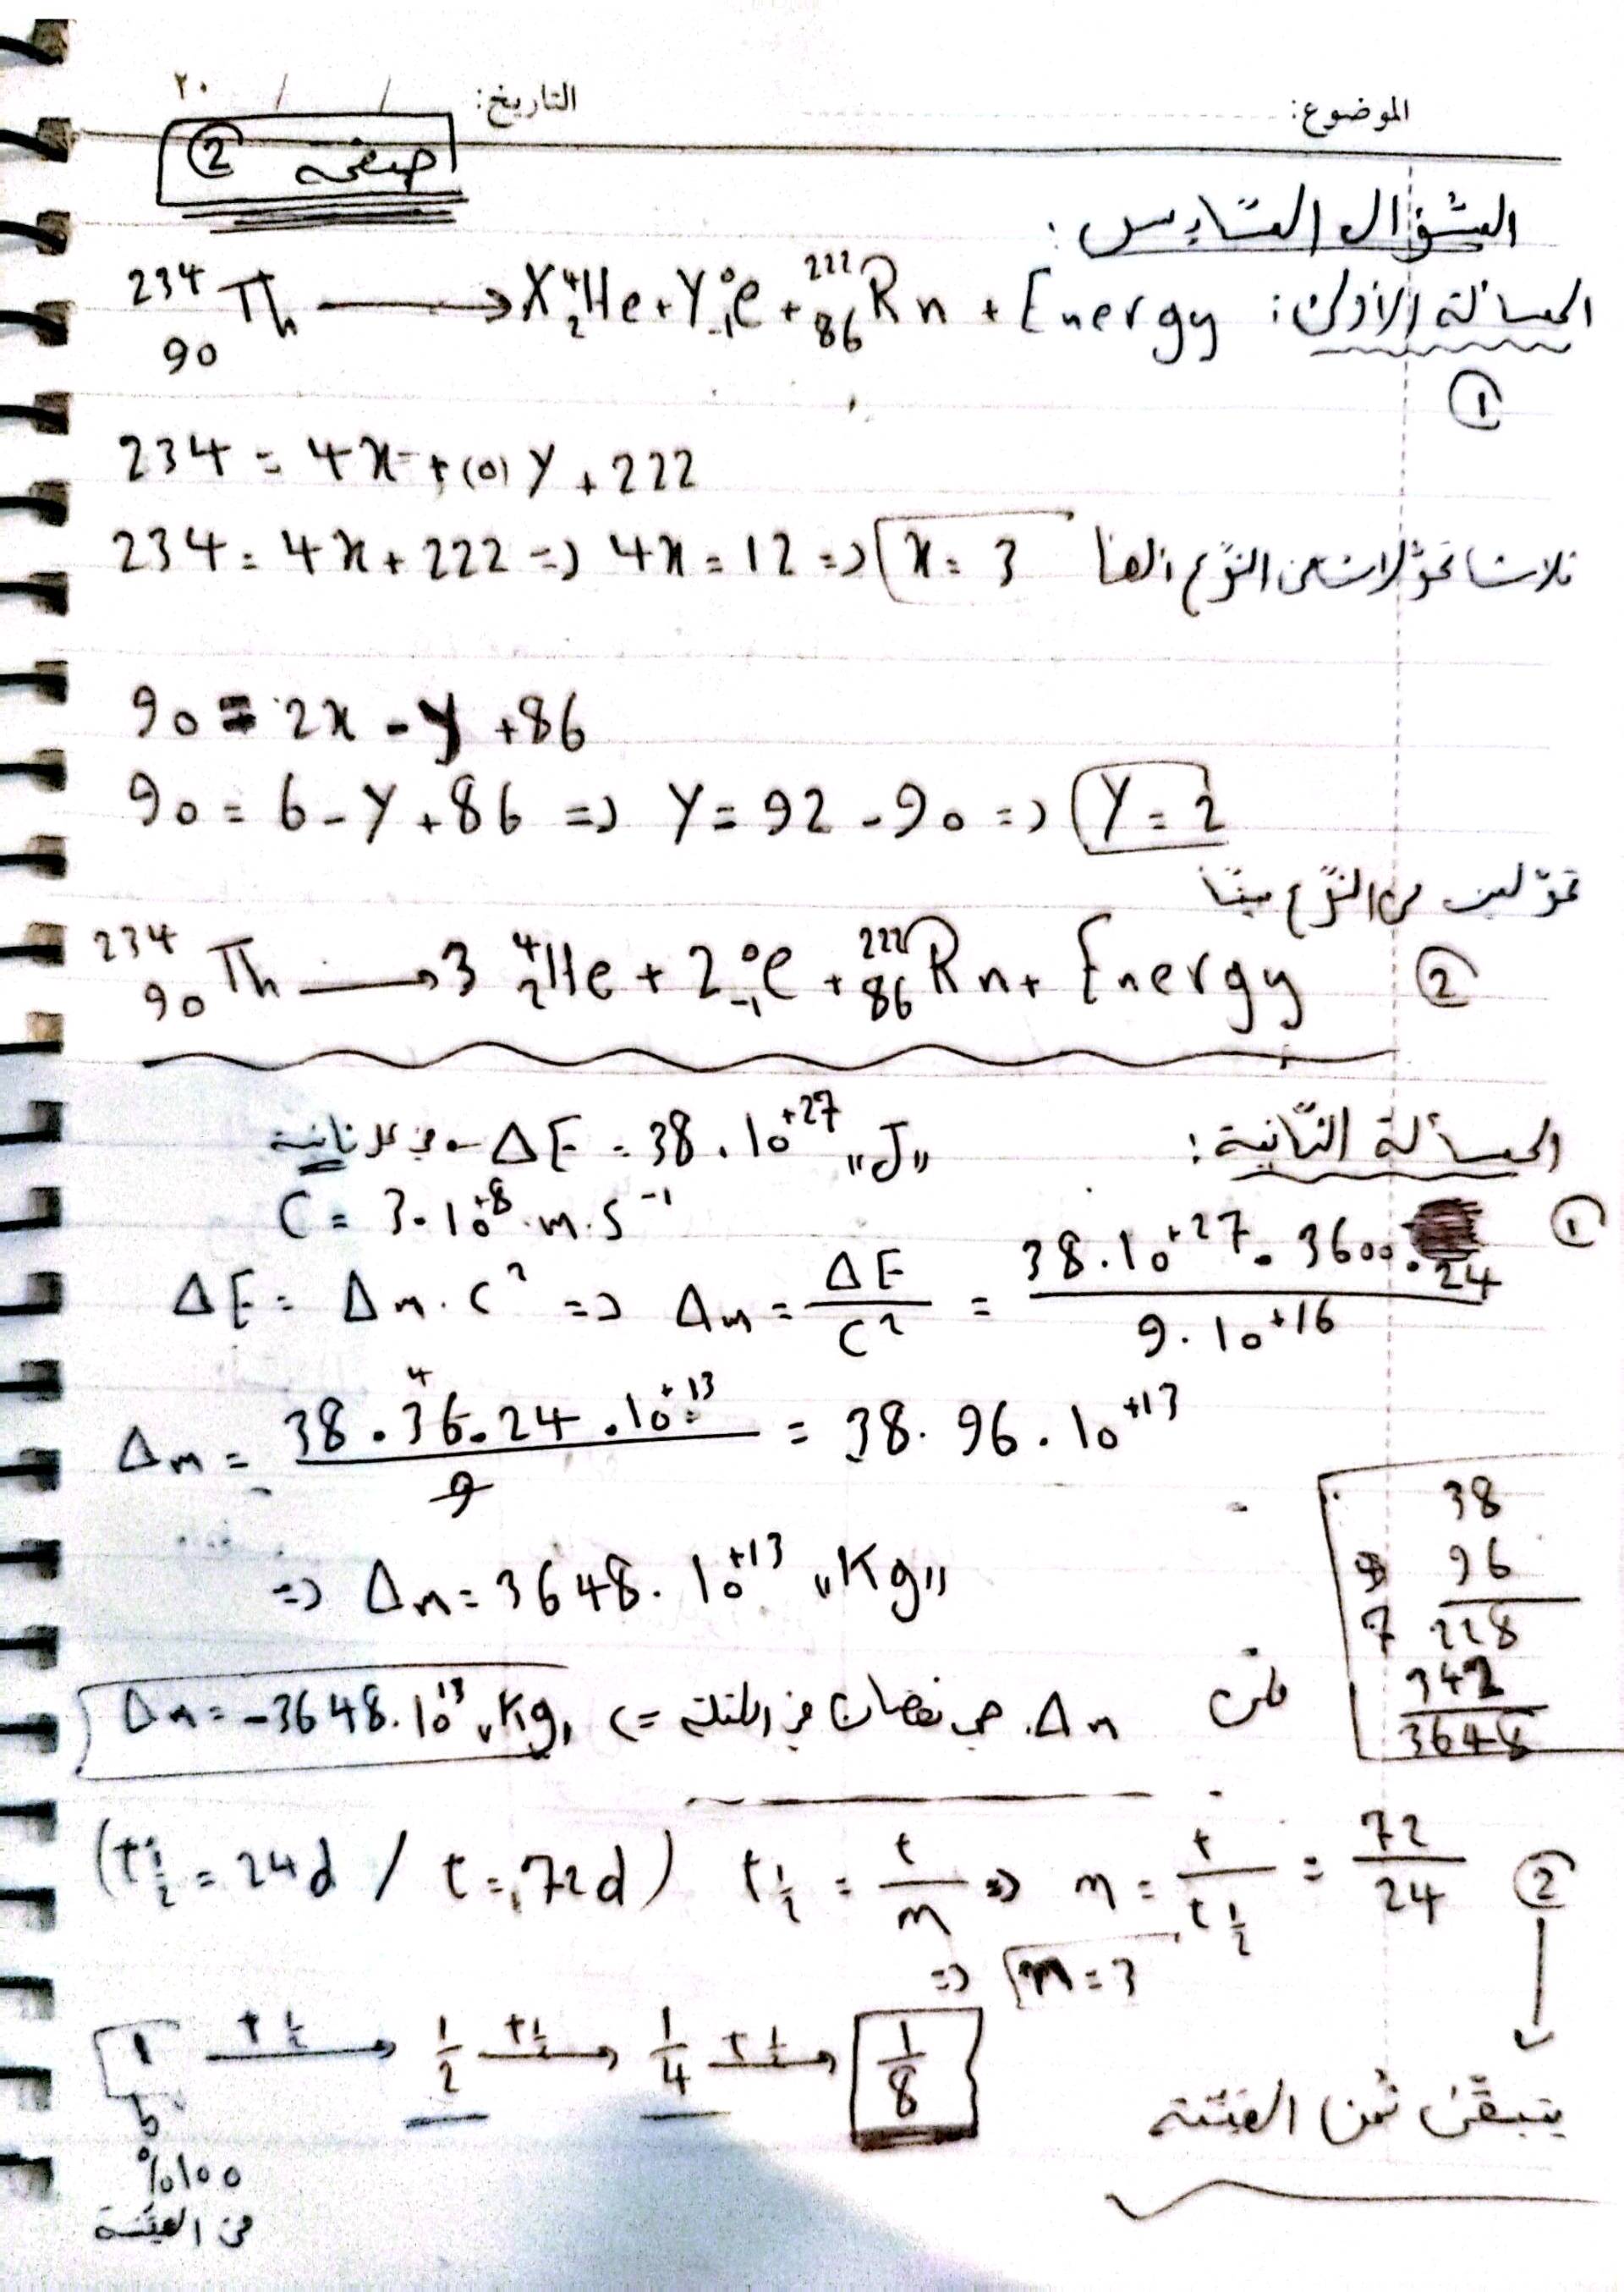 الموضوع: التاريخ: / / ٢٠
صفحة ②
السّؤال السّادس:
المسألة الأولى: ²³⁴₉₀Th ⟶ X ⁴₂He + Y ⁰₋₁e + ²²²₈₆Rn + Energy
①
234 = 4x + (0) Y + 222
234 = 4x + 222 => 4x = 12 => x = 3 ثلاث تحوّلات من النّوع ألفا
90 = 2x - y + 86
90 = 6 - Y + 86 => Y = 92 - 90 => Y = 2
تحوّلين من النّوع بيتا
② ²³⁴₉₀Th ⟶ 3 ⁴₂He + 2 ⁰₋₁e + ²²²₈₆Rn + Energy
المسألة الثّانية: ΔE = 38 . 10⁺²⁷ "J" في كل ثانية
① C = 3 . 10⁺⁸ . m . s⁻¹
ΔE = Δm . C² => Δm = ΔE / C² = 38 . 10⁺²⁷ . 3600 . 24 / 9 . 10⁺¹⁶
Δm = 38 . 36 . 24 . 10⁺¹³ / 9 = 38 . 96 . 10⁺¹³
4
38
96
228
342
3648
=> Δm = 3648 . 10⁺¹³ "Kg"
Δm هي نقصان في الكتلة => Δm = -3648 . 10¹³ "Kg"
② (t½ = 24d / t = 72d) t½ = t / n => n = t / t½ = 72 / 24
=> n = 3
1 ⟶ t½ 1/2 ⟶ t½ 1/4 ⟶ t½ 1/8
يتبقّى ثمن العيّنة
%100
من العيّنة